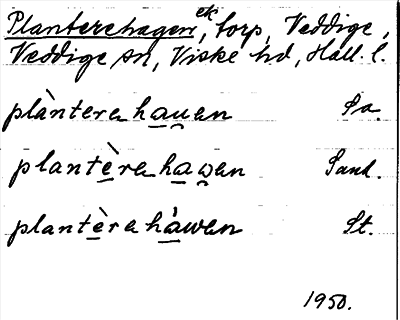 Planterehagen ek, torp, Veddige,
Veddige sn, Viske hd, Hall. l.
plàntera hauan Sa.
plantèra hawan Sand.
plantèra háwan St.
1950.